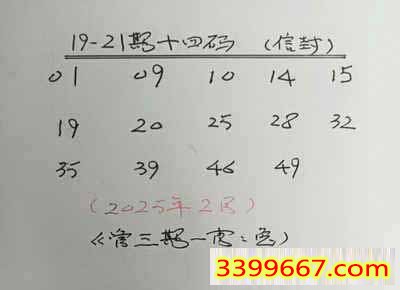 19-21期十四码 (信封)
01 09 10 14 15
19 20 25 28 32
35 39 46 49
(2025年2月)
《管三期一肖:兔》
3399667.com